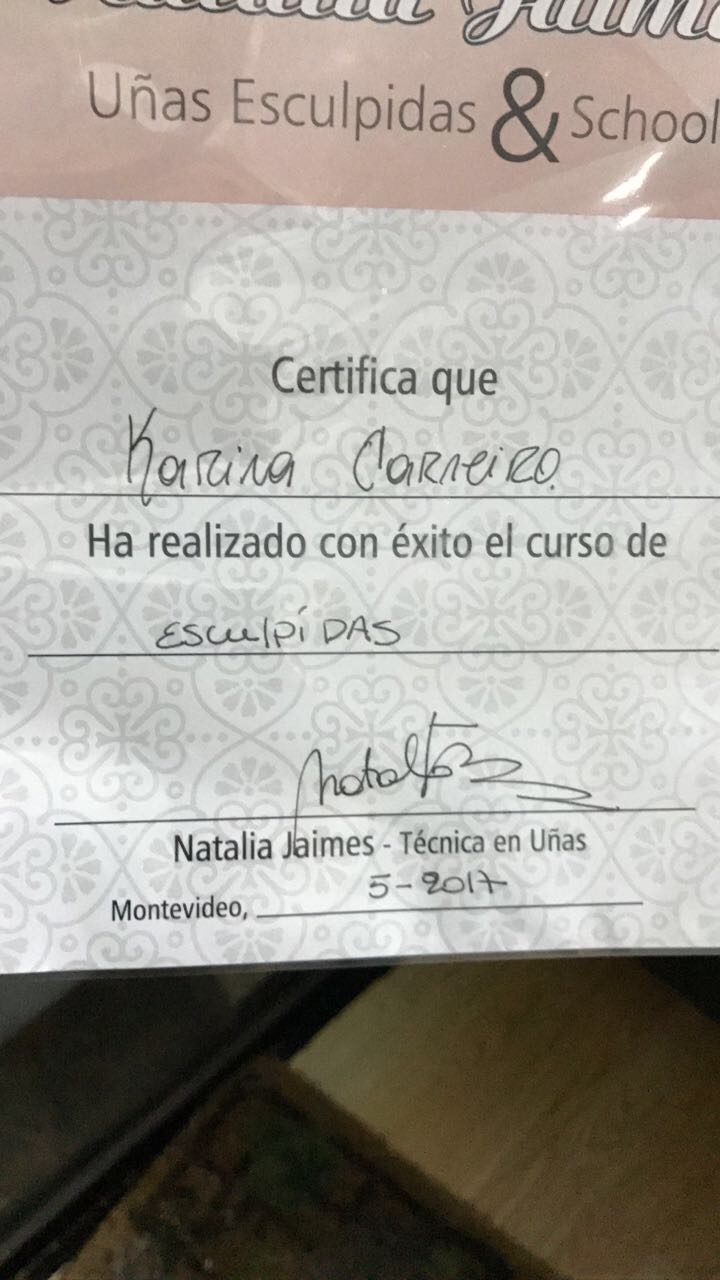 Natalia Jaimes
Uñas Esculpidas & School
Certifica que
Karina Carneiro
Ha realizado con éxito el curso de
Esculpídas
Natalia Jaimes - Técnica en Uñas
Montevideo, 5-2017